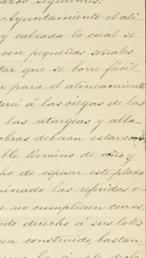 Ayuntamiento el ali
y calzada lo cual se
con pequeñas señales
tar que se borre fácil
para el alineamiento
será á las ciegas de las
las atargeas y alba
obras deberan estar
ble término de año y
ho de esperar este plazo
minado las referidas o
se no cumplieren con es
do derecho á sus lotes
en construido, bastan